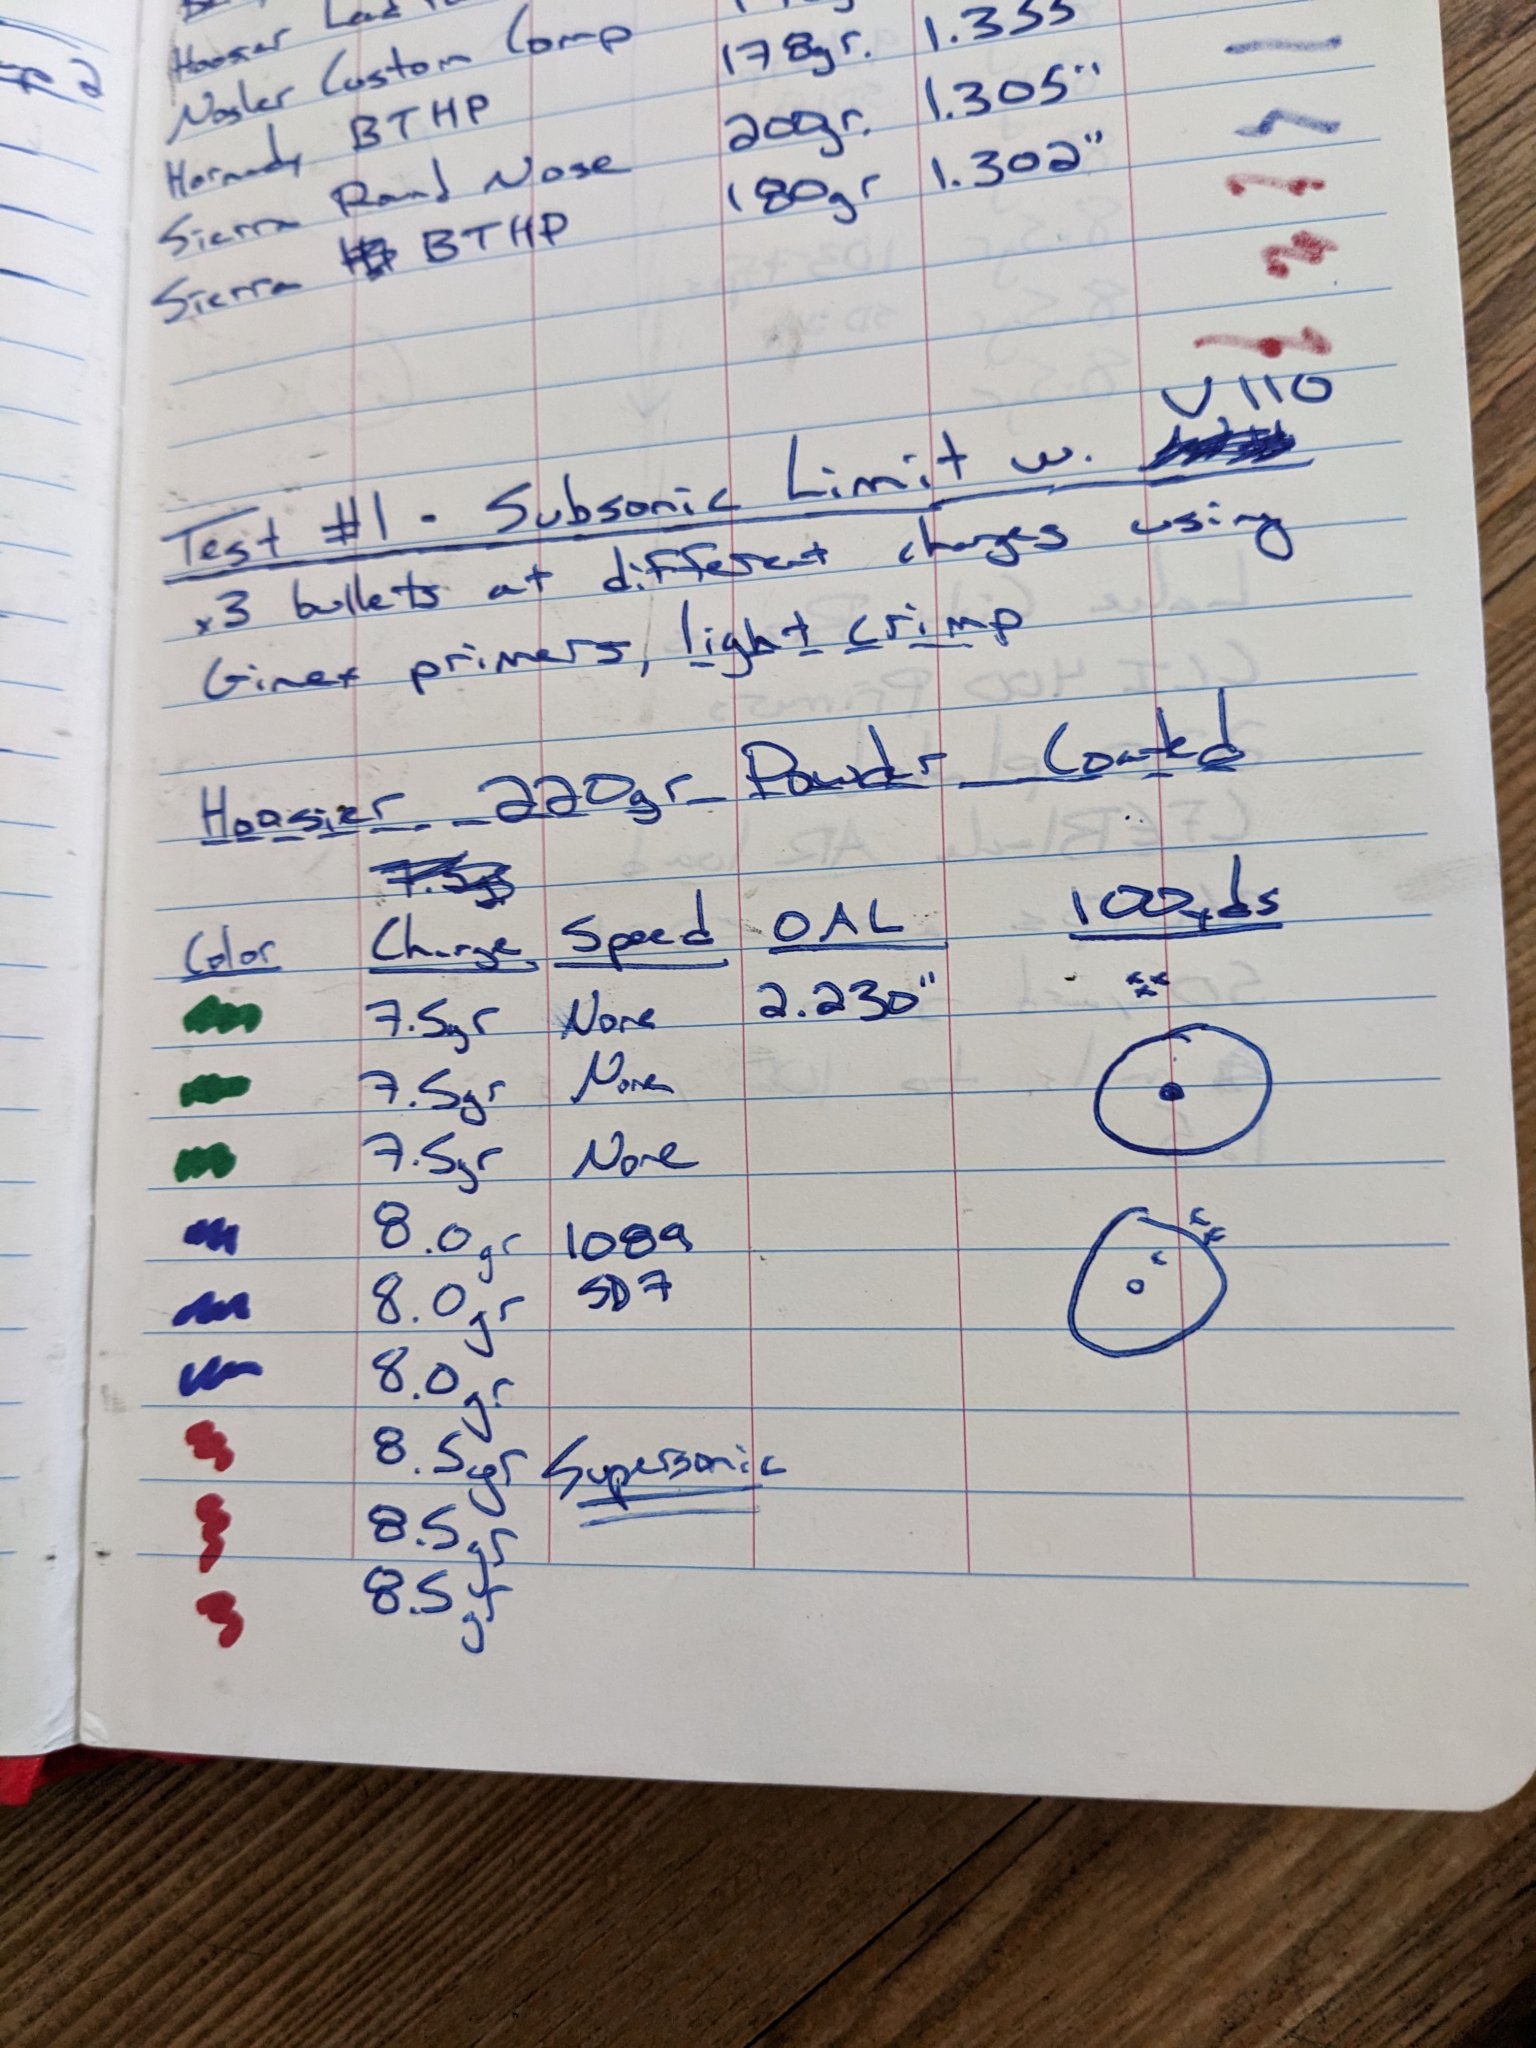 Hoosier
Nosler Custom Comp 178gr. 1.355
Hornady BTHP 200gr. 1.305"
Sierra Round Nose 180gr 1.302"
Sierra BTHP
V110
Test #1 - Subsonic Limit w.
x3 bullets at different charges using
Ginex primers, light crimp
Hoosier 220gr Powder Coated
Color Charge Speed OAL 100yds
7.5gr None 2.230"
7.5gr None
7.5gr None
8.0gr 1089
8.0gr SD7
8.0gr
8.5gr Supersonic
8.5gr
8.5gr